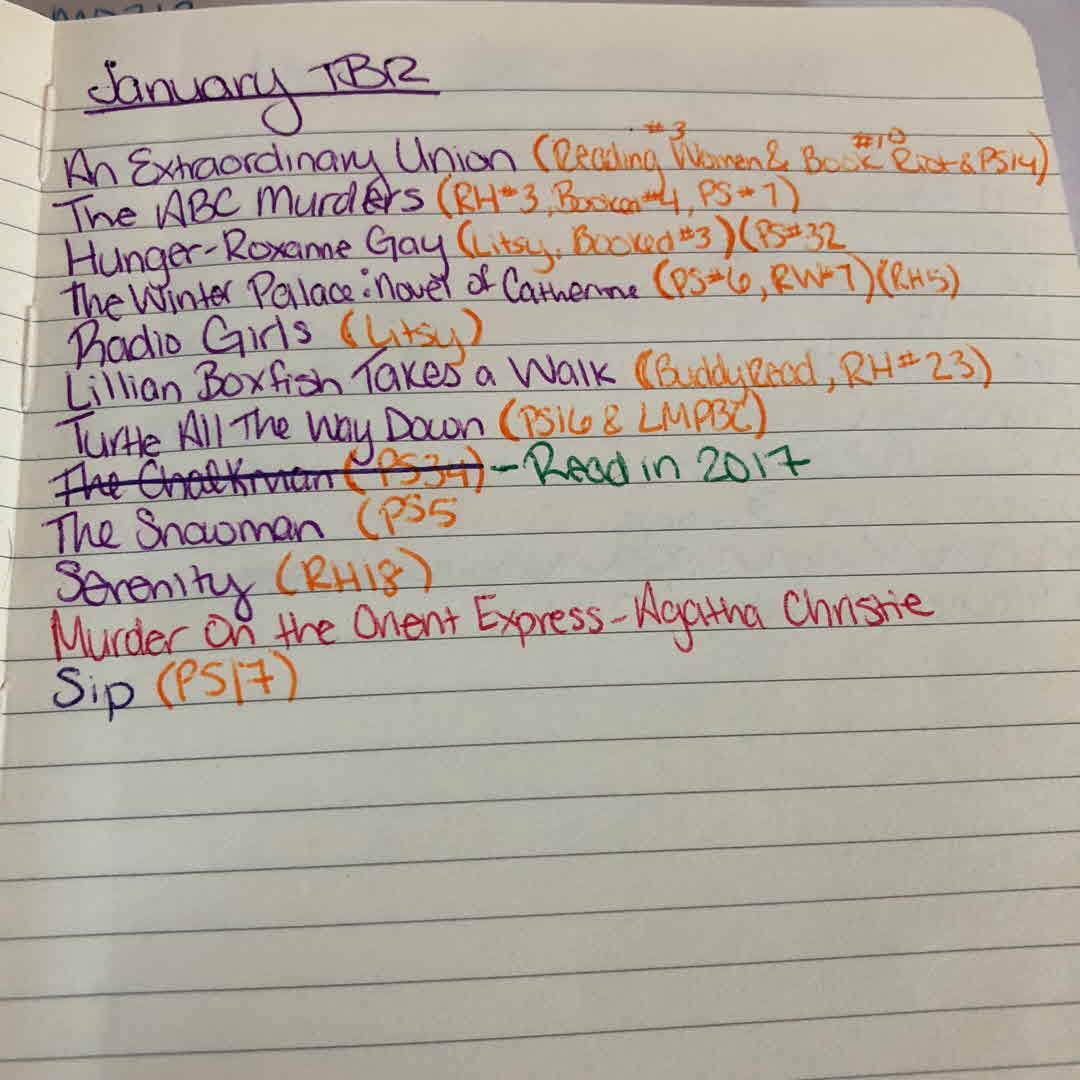 January TBR
#3 #10
An Extraordinary Union (Reading Women & Book Riot & PS14)
The ABC Murders (RH#3, Booked#4, PS#7)
Hunger-Roxanne Gay (Litsy, Booked #3) (PS#32
The Winter Palace: novel of Catherine (PS#6, RW#7) (RH5)
Radio Girls (Litsy)
Lillian Boxfish Takes a Walk (Buddy Read, RH#23)
Turtle All The Way Down (PS16 & LMPBC)
The Chalkman (PS34) - Read in 2017
The Snowman (PS5
Serenity (RH18)
Murder On the Orient Express - Agatha Christie
Sip (PS17)